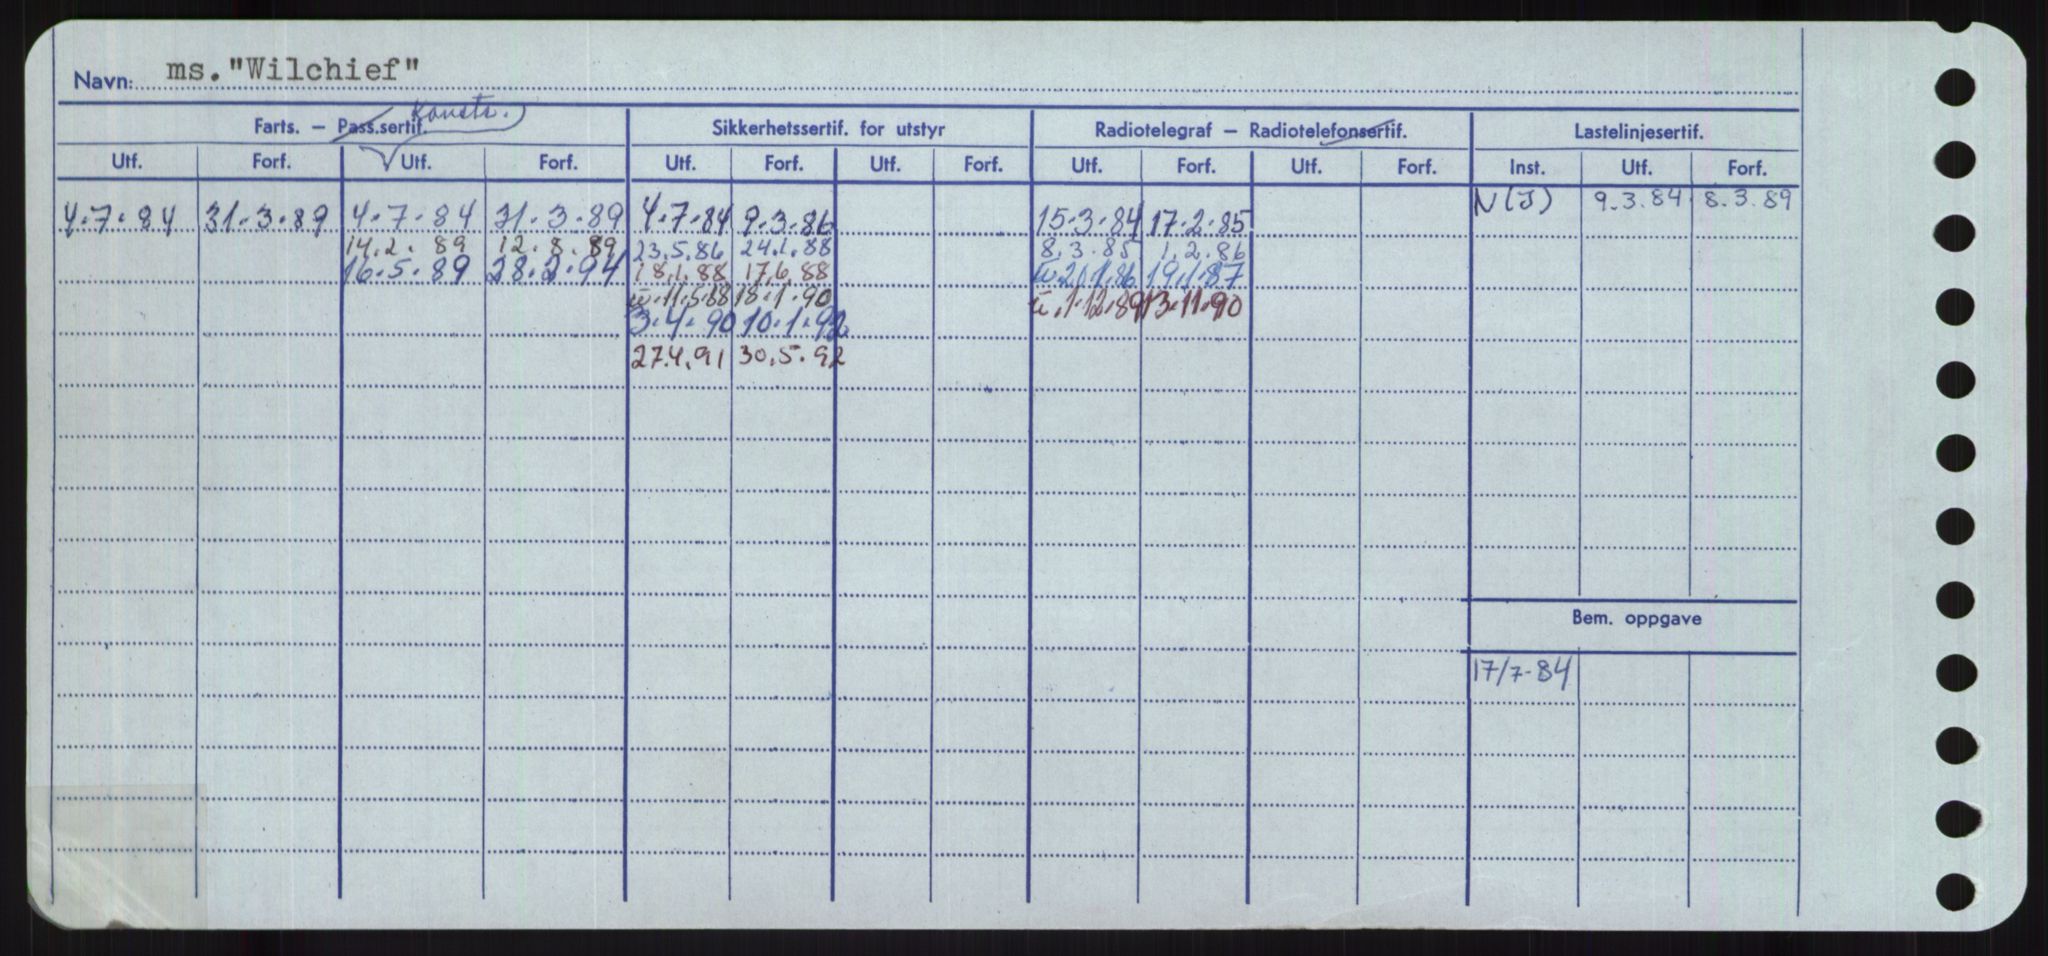 Navn: ms."Wilchief"
Konstr.
Farts. — Pass.sertif. Sikkerhetssertif. for utstyr Radiotelegraf — Radiotelefonsertif. Lastelinjesertif.
Utf. Forf. Utf. Forf. Utf. Forf. Utf. Forf. Utf. Forf. Utf. Forf. Inst. Utf. Forf.
N(J) 9.3.84 8.3.89
4.7.84 31.3.89 4.7.84 31.3.89 4.7.84 9.3.86 15.3.84 17.2.85
14.2.89 12.8.89 23.5.86 24.1.88 8.3.85 1.2.86
16.5.89 28.2.94 18.1.88 17.6.88 20.1.86 19.1.87
11.5.88 18.1.90 1.12.89 13.11.90
3.4.90 10.1.92
27.4.91 30.5.92
Bem. oppgave
17/7-84